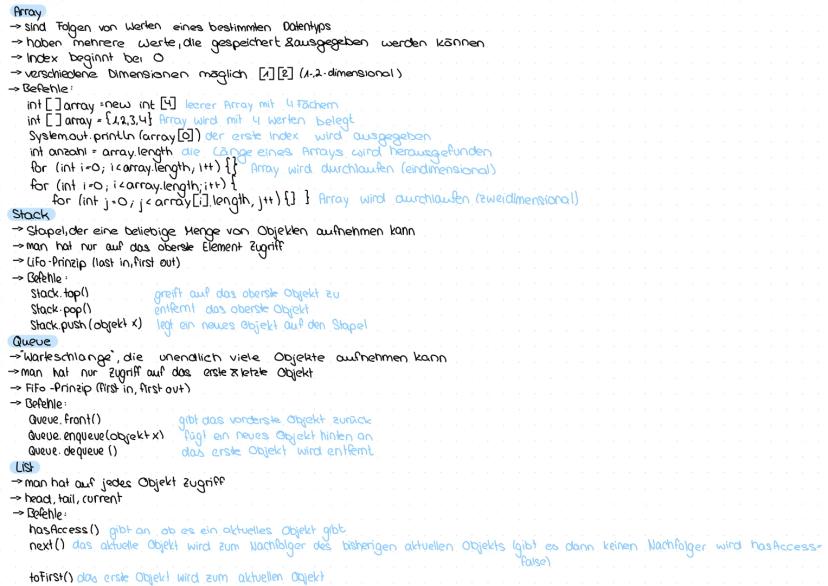 Array
→ sind Folgen von Werten eines bestimmten Datentyps
→ haben mehrere Werte, die gespeichert & ausgegeben werden können
→ Index beginnt bei 0
→ verschiedene Dimensionen möglich [1][2] (1-,2-dimensional)
→ Befehle:
int [ ] array = new int [4] leerer Array mit 4 Fächern
int [ ] array = {1,2,3,4} Array wird mit 4 Werten belegt
System.out.println (array[0]) der erste Index wird ausgegeben
int anzahl = array.length die Länge eines Arrays wird herausgefunden
for (int i=0; i<array.length, i++) {} Array wird durchlaufen (eindimensional)
for (int i=0; i<array.length; i++) {
for (int j=0; j<array[i].length, j++) {} } Array wird durchlaufen (zweidimensional)
Stack
→ Stapel, der eine beliebige Menge von Objekten aufnehmen kann
→ man hat nur auf das oberste Element Zugriff
→ LiFo-Prinzip (last in, first out)
→ Befehle:
Stack.top() greift auf das oberste Objekt zu
Stack.pop() entfernt das oberste Objekt
Stack.push (objekt x) legt ein neues Objekt auf den Stapel
Queue
→ "Warteschlange", die unendlich viele Objekte aufnehmen kann
→ man hat nur Zugriff auf das erste & letzte Objekt
→ FiFo-Prinzip (first in, first out)
→ Befehle:
Queue.front() gibt das vorderste Objekt zurück
Queue.enqueue(objekt x) fügt ein neues Objekt hinten an
Queue.dequeue () das erste Objekt wird entfernt
List
→ man hat auf jedes Objekt Zugriff
→ head, tail, current
→ Befehle:
hasAccess() gibt an ob es ein aktuelles Objekt gibt
next() das aktuelle Objekt wird zum Nachfolger des bisherigen aktuellen Objekts (gibt es dann keinen Nachfolger wird hasAccess=
false)
toFirst() das erste Objekt wird zum aktuellen Objekt